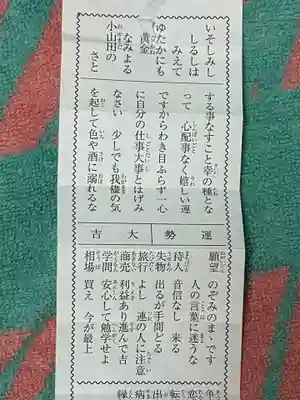 いそしみし
しるしは
みえて
ゆたかにも
黄金
なみよる
小山田の
さと
する事なすこと幸の種とな
って 心配事なく嬉しい運
ですからわき目ふらず一心
に自分の仕事大事とはげみ
なさい 少しでも我儘の気
を起して色や酒に溺れるな
運勢大吉
願望 のぞみのまゝです
人の言葉に迷うな
待人 音信なし 来る
失物 出るが手間どる
旅行 よし 連の人に注意
商売 利益あり進んで吉
学問 安心して勉学せよ
相場 買え 今が最上
争
恋
転
出
病
縁